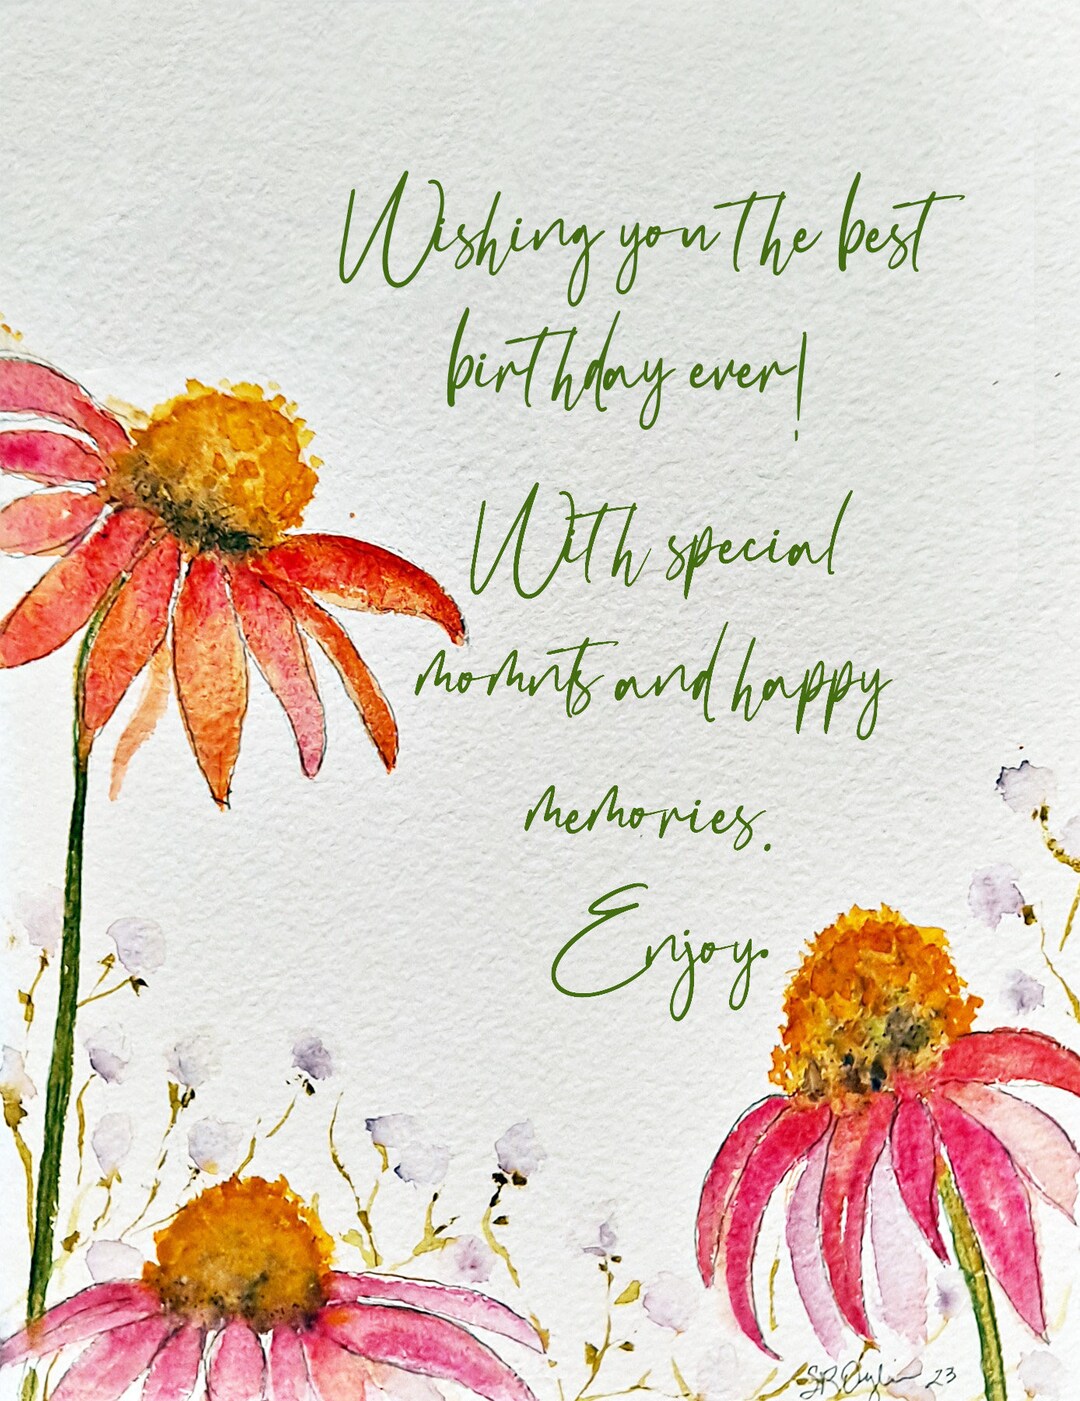 Wishing you the best
birthday ever!
With special
momnts and happy
memories.
Enjoy.
23